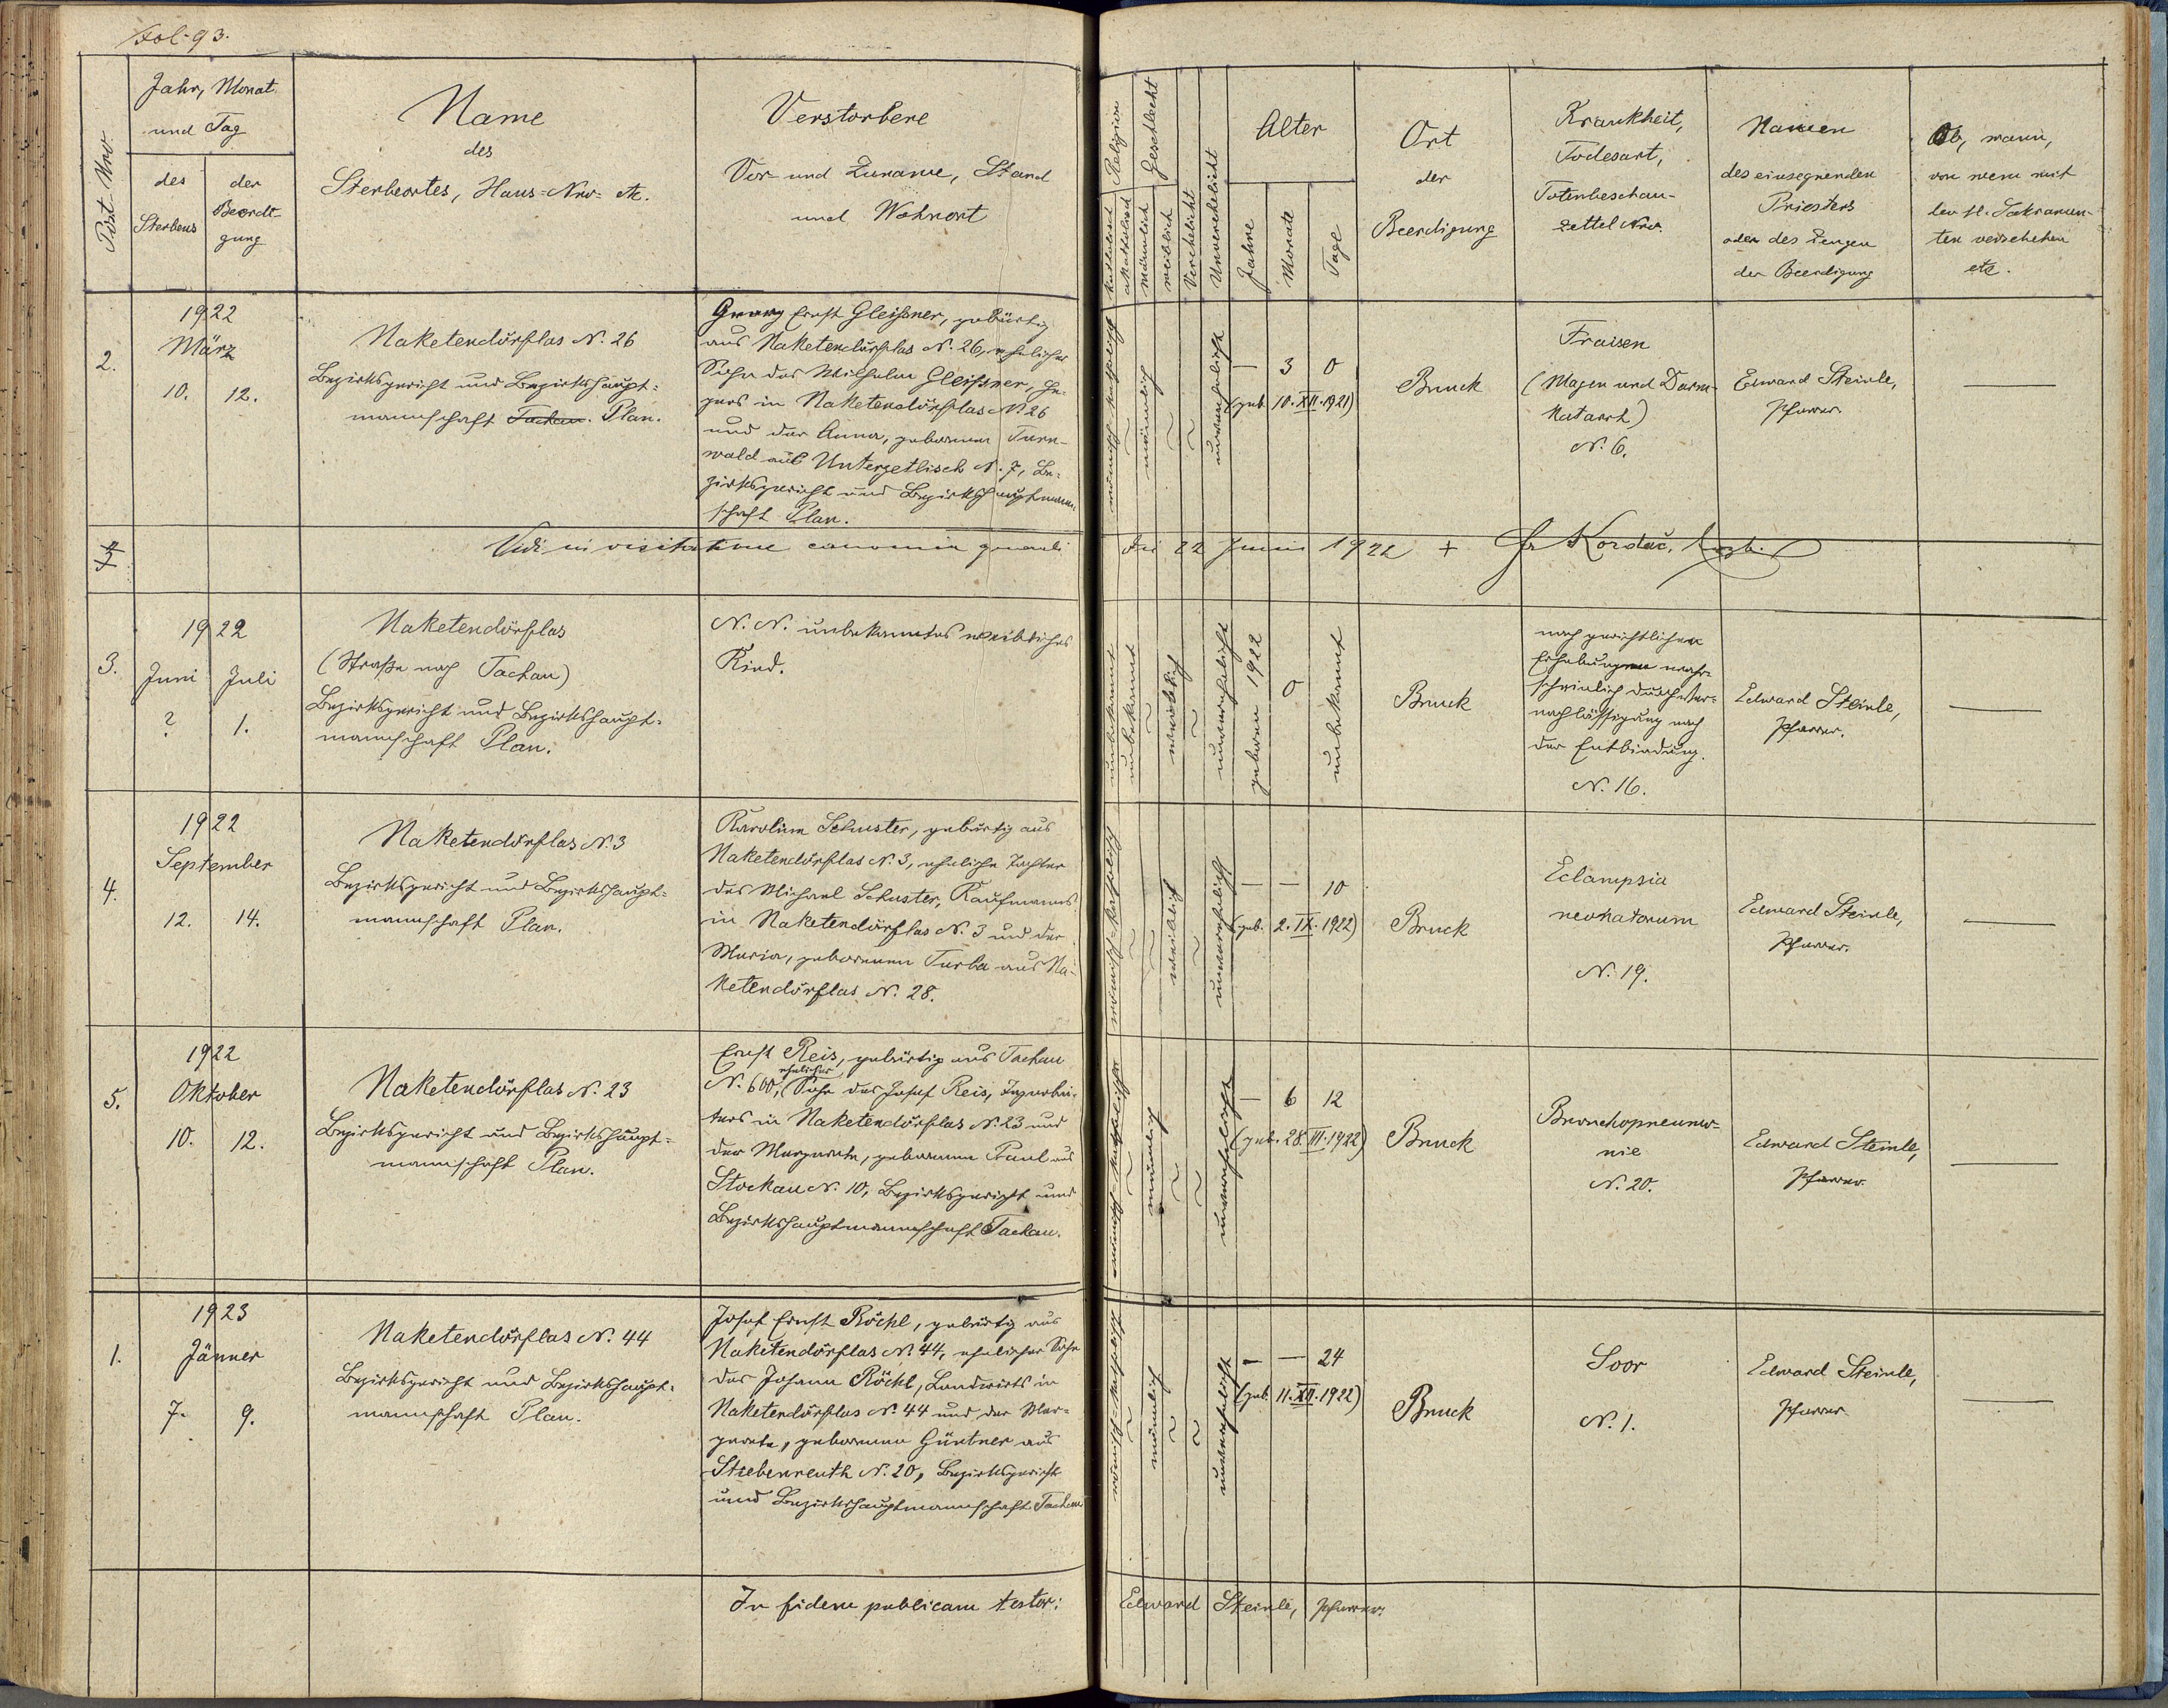 Fol. 93.
Post Nro
Jahr, Monat
und Tag
des
Sterbens
der
Beerdi-
gung
Name
des
Sterbeortes, Haus-Nro- etc.
Verstorbene
Vor- und Zuname, Stand
und Wohnort
Religion
katholisch
akatholisch
Geschlecht
männlich
weiblich
Verehelicht
Unverehelicht
Alter
Jahre
Monate
Tage
Ort
der
Beerdigung
Krankheit,
Todesart,
Totenbeschau-
zettel Nro.
Namen
des einsegnenden
Priesters
oder des Zeugen
der Beerdigung
Ob, wann,
von wem mit
den hl. Sakramen-
ten versehen
etc.
2.
1922
März
10. 12.
Naketendörflas N. 26
Bezirksgericht und Bezirkshaupt-
mannschaft Tachau. Plan.
Georg Ernst Gleißner, gebürtig
aus Naketendörflas N. 26, ehelicher
Sohn des Wilhelm Gleißner, He-
gers in Naketendörflas N. 26
und der Anna, gebornen Turn-
wald aus Untergetlisch N. 7, Be-
zirksgericht und Bezirkshauptmann-
schaft Plan.
römisch-katholisch
männlich
unverehelicht
— 3 0
(geb. 10. XII. 1921)
Bruck
Fraisen
(Magen und Darm-
katarrh)
N. 6.
Edward Steinle,
Pfarrer.
—
Vidi in visitatione canonica generali die 22 Junii 1922 + Fr Kordač,
3.
1922
Juni Juli
? 1.
Naketendörflas
(Straße nach Tachau)
Bezirksgericht und Bezirkshaupt-
mannschaft Plan.
N. N. unbekanntes weibliches
Kind.
unbekannt
unbekannt
weiblich
unverehelicht
geboren 1922
0
unbekannt
Bruck
nach gerichtlichen
Erhebungen wahr-
scheinlich durch Ver-
nachlässigung nach
der Entbindung.
N. 16.
Edward Steinle,
Pfarrer.
—
4.
1922
September
12. 14.
Naketendörflas N. 3
Bezirksgericht und Bezirkshaupt-
mannschaft Plan.
Karolina Schuster, gebürtig aus
Naketendörflas N. 3, eheliche Tochter
des Michael Schuster, Kaufmanns
in Naketendörflas N. 3 und der
Maria, gebornen Turba aus Na-
ketendörflas N. 28.
römisch-katholisch
weiblich
unverehelicht
— — 10
(geb. 2. IX. 1922)
Bruck
Eclampsia
neonatorum
N. 19.
Edward Steinle,
Pfarrer.
—
5.
1922
Oktober
10. 12.
Naketendörflas N. 23
Bezirksgericht und Bezirkshaupt-
mannschaft Plan.
Ernst Reis, gebürtig aus Tachau
N. 600, ehelicher Sohn des Josef Reis, Tagarbei-
ters in Naketendörflas N. 23 und
der Margareta, gebornen Paul aus
Stockau N. 10, Bezirksgericht und
Bezirkshauptmannschaft Tachau.
römisch-katholisch
männlich
unverehelicht
— 6 12
(geb. 28. III. 1922)
Bruck
Bronchopneumo-
nie
N. 20.
Edward Steinle,
Pfarrer.
—
1.
1923
Jänner
7. 9.
Naketendörflas N. 44
Bezirksgericht und Bezirkshaupt-
mannschaft Plan.
Josef Ernst Röckl, gebürtig aus
Naketendörflas N. 44, ehelicher Sohn
des Johann Röckl, Landwirts in
Naketendörflas N. 44 und der Mar-
gareta, gebornen Güntner aus
Strebenreuth N. 20, Bezirksgericht
und Bezirkshauptmannschaft Tachau
römisch-katholisch
männlich
unverehelicht
— — 24
(geb. 11. XII. 1922)
Bruck
Soor
N. 1.
Edward Steinle,
Pfarrer
—
In fidem publicam testor: Edward Steinle, Pfarrer.